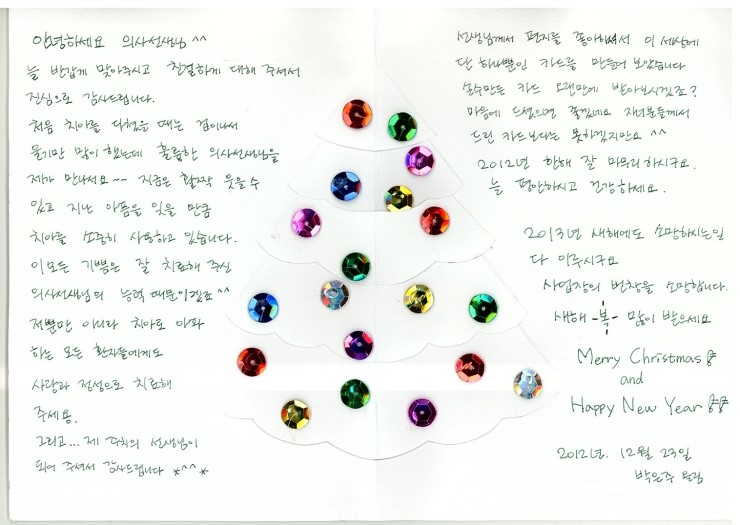 안녕하세요 의사선생님 ^^
늘 반갑게 맞아주시고 친절하게 대해 주셔서
진심으로 감사드립니다.
처음 치아를 다쳤을 때는 겁이나서
울기만 많이 했는데 훌륭한 의사선생님을
제가 만나서요~~ 지금은 활짝 웃을수
있고 지난 아픔을 잊을 만큼
치아를 소중히 사용하고 있습니다.
이모든 기쁨은 잘 치료해 주신
의사선생님의 능력 때문이겠죠^^
저뿐만 아니라 치아로 아파
하는 모든 환자들에게도
사랑과 정성으로 치료해
주세용.
그리고... 제 주치의 선생님이
되어 주셔서 감사드립니다 *^^*
선생님께서 편지를 좋아하셔서 이 세상에
단 하나뿐인 카드를 만들어 보았습니다
손수만든 카드 오랜만에 받아보시겠죠?
마음에 드셨으면 좋겠네요 자녀분들께서
드린 카드보다는 못하겠지만요 ^^
2012년 한해 잘 마무리하시구요.
늘 평안하시고 건강하세요.
2013년 새해에도 소망하시는일
다 이루시구요
사업장의 번창을 소망합니다.
새해 -복- 많이 받으세요
Merry Christmas
and
Happy New Year
2012년. 12월 23일
박은주 올림